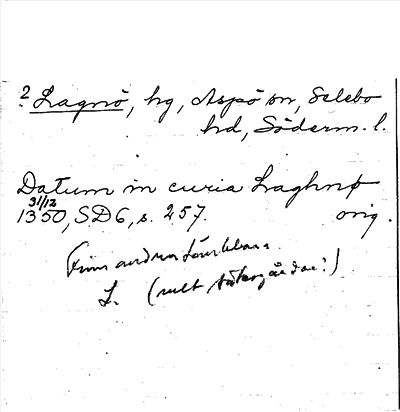 ? Lagnö, hg, Aspö sn, Selebo
hd, Söderm. l.
Datum in curia Laghnø
31/12
1350, SD 6, s. 257. orig.
Finns andra tänkbara
L. (med sätesgårdar?)